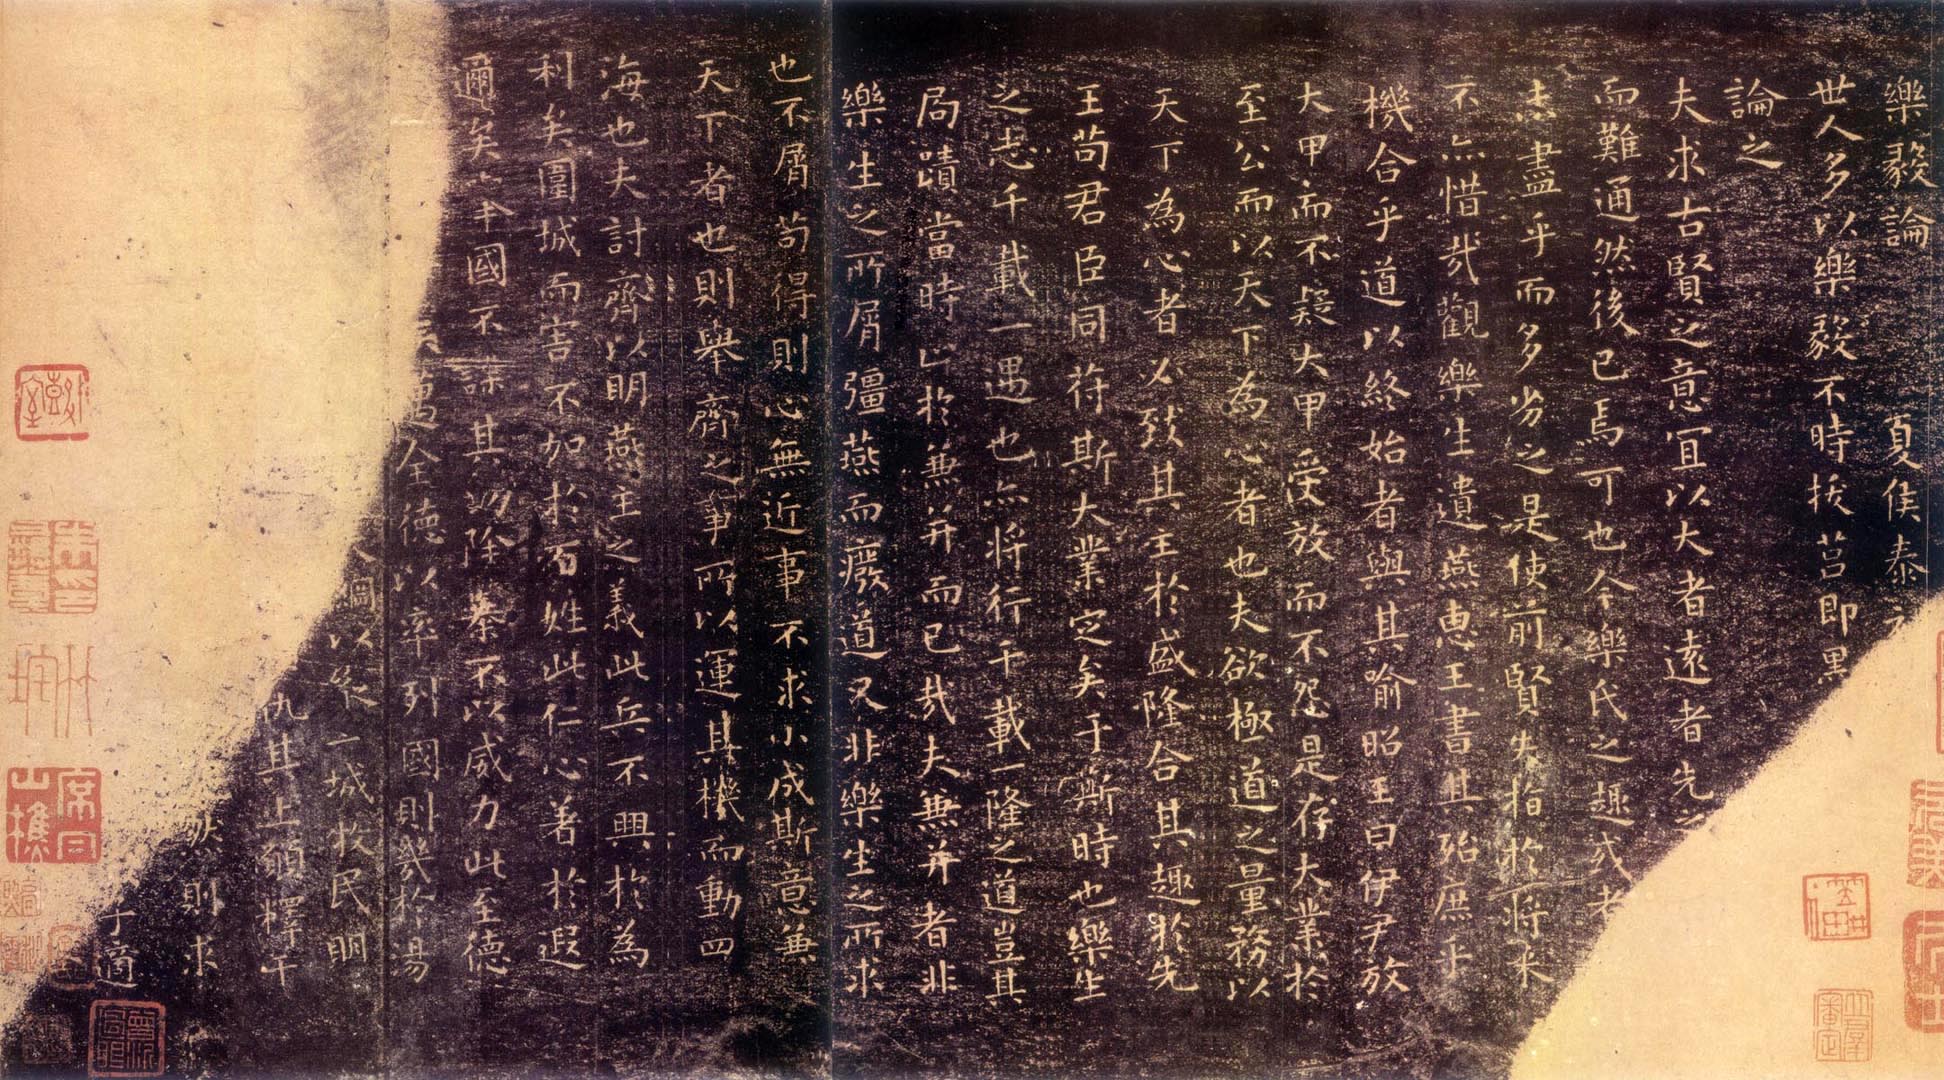 樂毅論 夏侯泰
世人多以樂毅不時拔莒即墨
論之
夫求古賢之意宜以大者遠者先之
而難通然後已焉可也今樂氏之趣或者
未盡乎而多劣之是使前賢失指於將来
不亦惜哉觀樂生遺燕惠王書其殆庶乎
機合乎道以終始者與其喻昭王曰伊尹放
大甲而不疑大甲受放而不怨是存大業於
至公而以天下為心者也夫欲極道之量務以
天下為心者必致其主於盛隆合其趣於先
王苟君臣同符斯大業定矣于斯時也樂生
之志千載一遇也亦將行千載一隆之道豈其
局蹟當時止於兼并而已哉夫兼并者非
樂生之所屑彊燕而癈道又非樂生之所求
也不屑苟得則心無近事不求小成斯意兼
天下者也則舉齊之事所以運其機而動四
海也夫討齊以明燕主之義此兵不興於為
利矣圍城而害不加於百姓此仁心著於遐
邇矣举國不謀其功除暴不以威力此至德
全德以率列國則幾於湯
以縱二城牧民明
仇其上願釋干
則求
子適